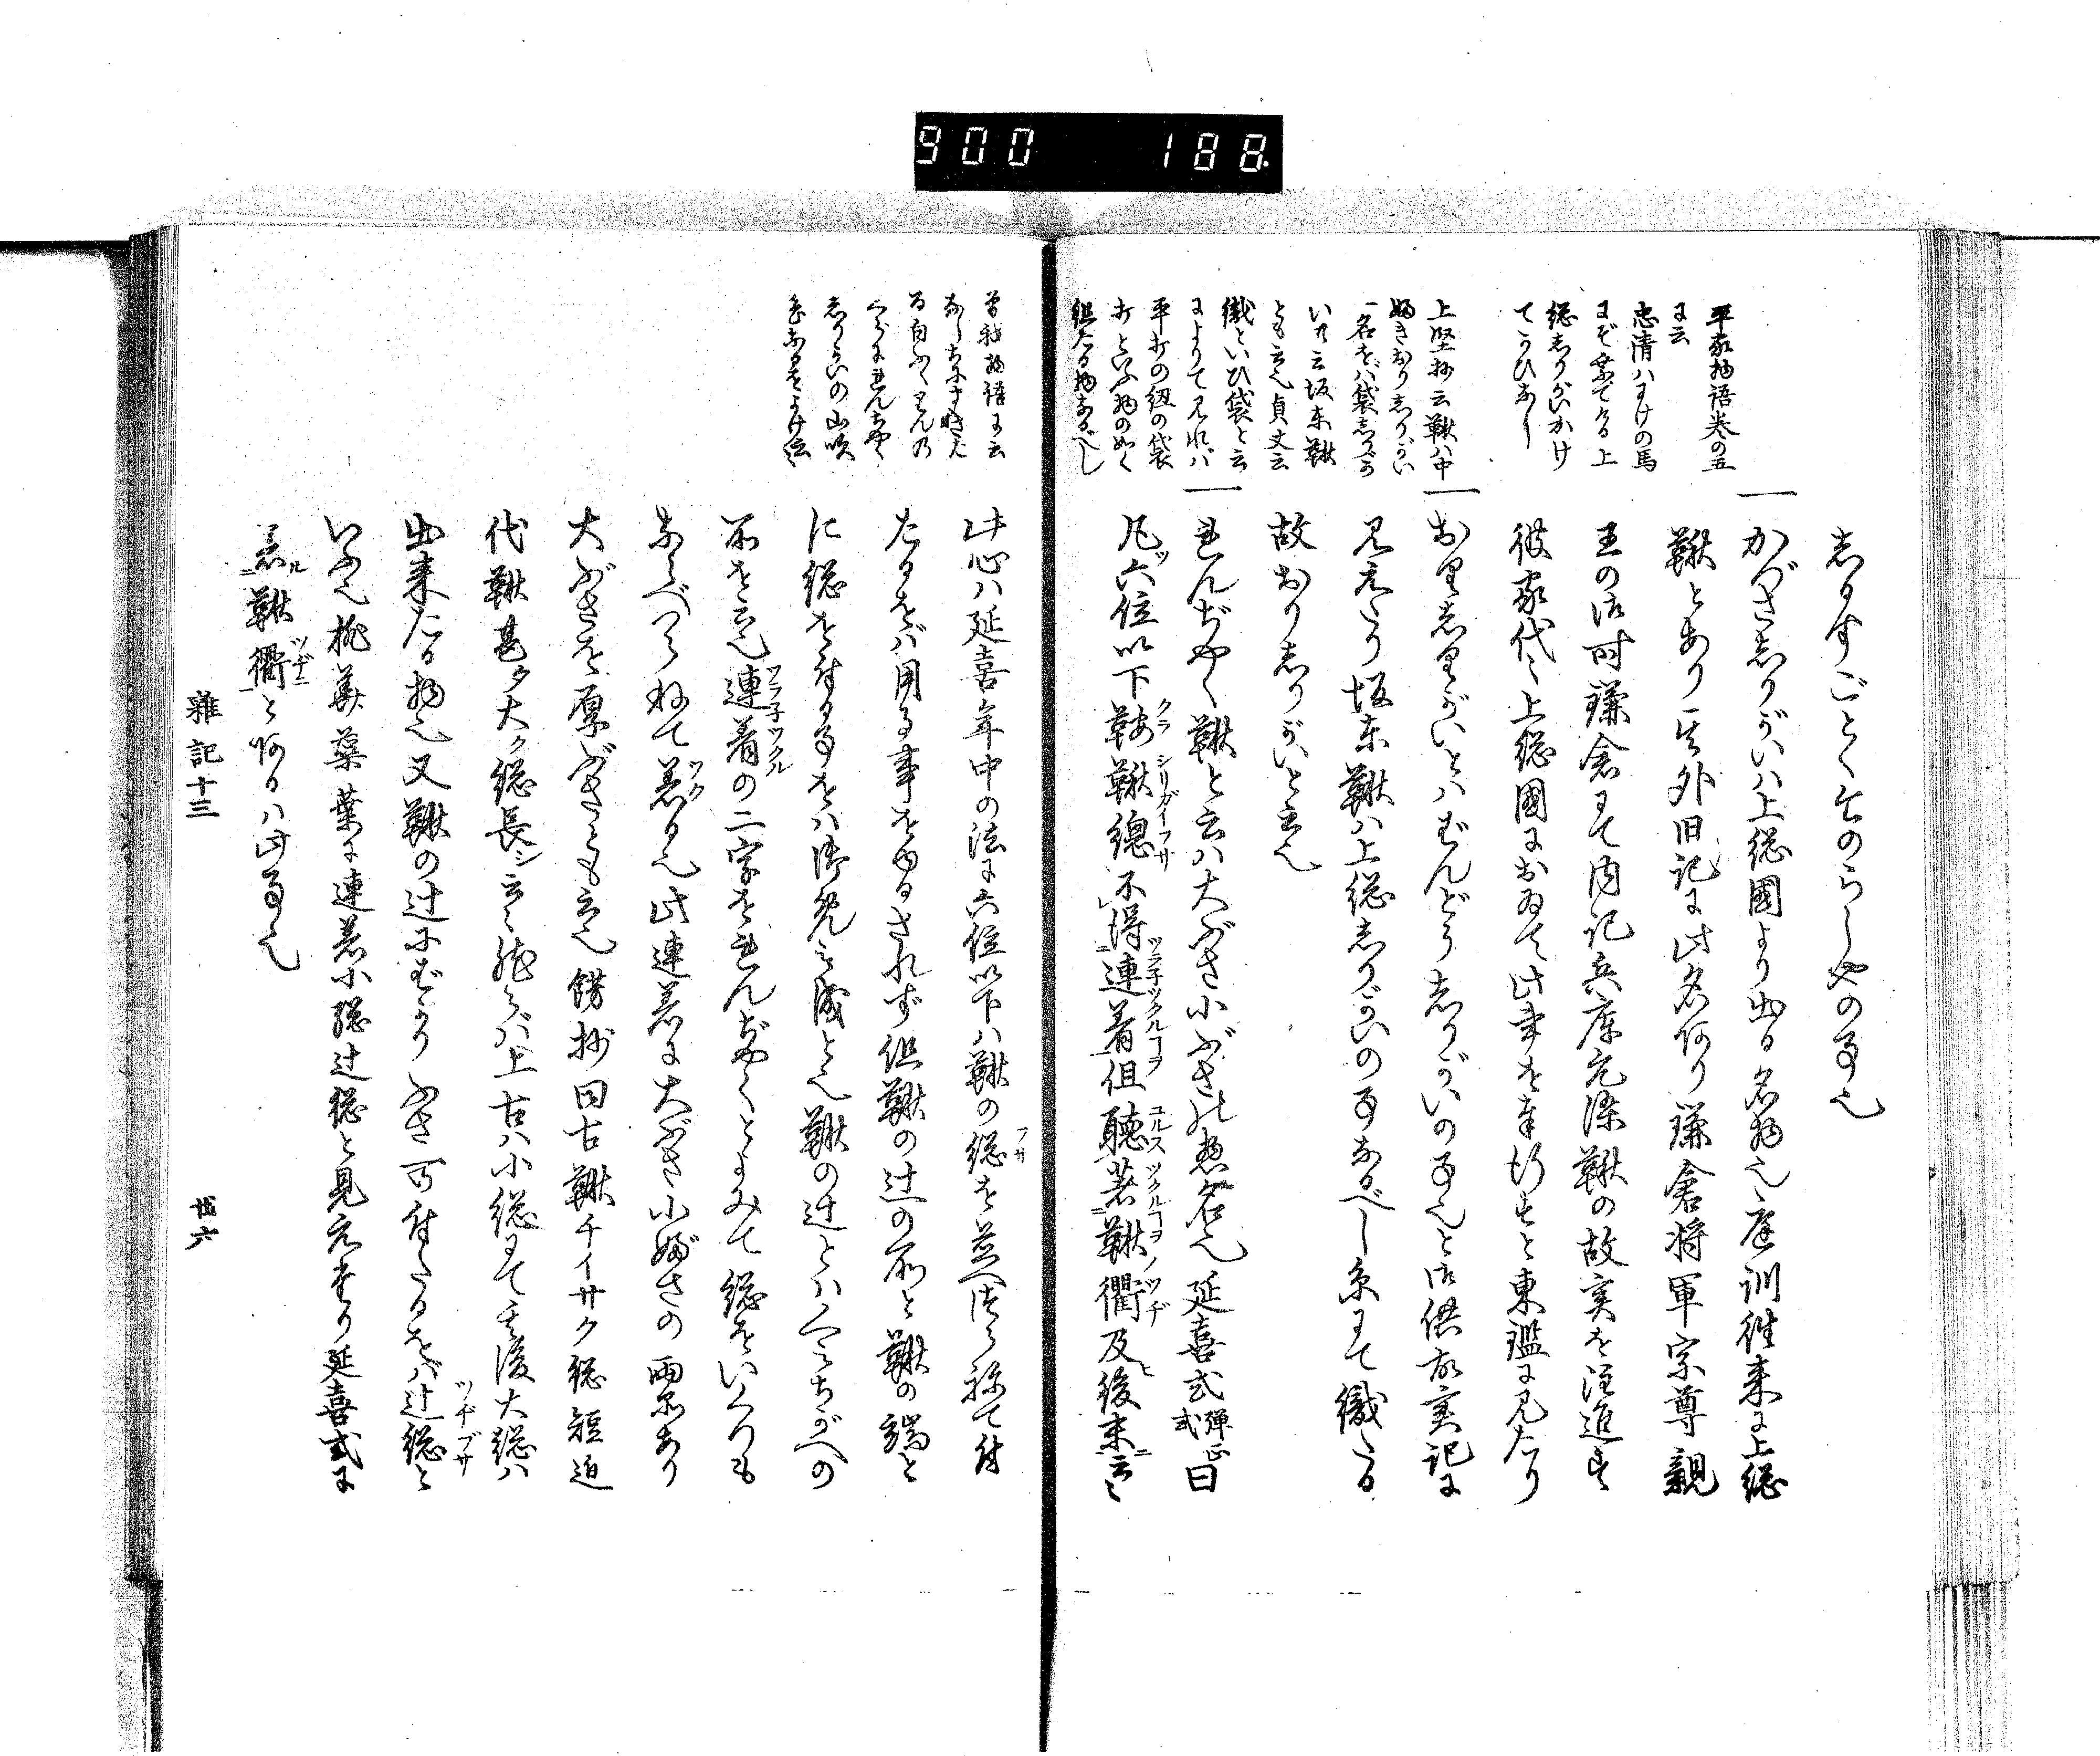 900 188
平家物語巻の五
に云
忠清ハすけの馬
にぞ乗てける上
総しりがいかけ
てうひあし
上賢抄云鞦ハ中
ぬきおりしりがい
一名をバ袋しりが
いト云坂東鞦
とも云也貞丈云
織といひ袋と云
によりて見れバ
平打の紐の袋
打といふ物の如く
組たる物なるべし
しるすごとく竹のらしやの事也
一かづさしりがいハ上総國より出る名物也庭訓徃来に上総
鞦とあり其外旧記に此名阿り鎌倉将軍宗尊親
王の御时鎌倉にて内記兵庫允深鞦の故実を注進せ
彼家代々上総國におゐて此事を奉行せと東鑑に見たり
一おりしりがいとハばんどうしりがいの事也と御供故実記に
見えたり坂東鞦ハ上総しりがいの事なるべし糸にて織たる
故おりしりがいと云也
一れんぢやく鞦と云ハ大ぶさ小ぶさの惣名也延喜式弾正式曰
凡ッ六位以下鞍鞦總不得連着但聴着鞦衢及後末云々
曽我物語に云
る白ふくりんの
くらにれんぢやく
しりがいの山吹
此心ハ延喜年中の法に六位以下ハ鞦の総を並へ津ら祢て付
たるをバ用る事をゆるされず但鞦の辻の所と鞦の端と
に総を付る事をハ御免被成と也鞦の辻とハくミちがへの
所を云也連着の二字をれんぢやくとよみて総をいくつも
ならべつらねて着る也此連着に大ぶさ小ぶさの両品あり
大ぶさを厚ぶさとも云也餝抄曰古鞦チイサク総短近
代鞦甚タ大ク総長シ云々然らバ上古ハ小総にて其後大総ハ
出来たる物也又鞦の辻にばかりふさ一ツ付たるをバ辻総と
いふ也桃華蘂葉に連着小総辻総と見えたり延喜式に
着ル鞦衢ニと阿るハ此事也
雜記十三
廿六